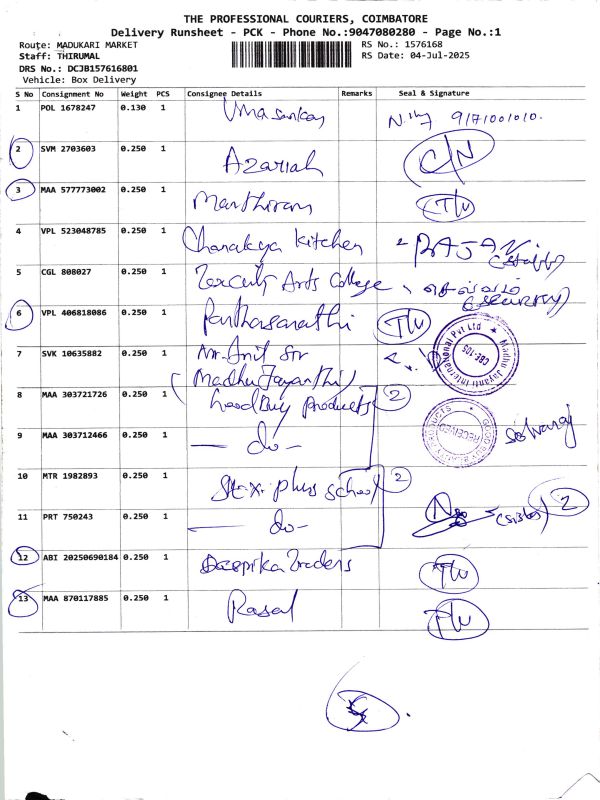 THE PROFESSIONAL COURIERS, COIMBATORE
Delivery Runsheet - PCK - Phone No.:9047080280 - Page No.:1
Route: MADUKARI MARKET RS No.: 1576168
Staff: THIRUMAL RS Date: 04-Jul-2025
DRS No.: DCJB157616801
Vehicle: Box Delivery
S No Consignment No Weight PCS Consignee Details Remarks Seal & Signature
1 POL 1678247 0.130 1 Umasankar
2 SVM 2703603 0.250 1 Azariah C/N
3 MAA 577773002 0.250 1 Manthiram
4 VPL 523048785 0.250 1 Chanakya Kitchen RAJAN
5 CGL 808027 0.250 1 Arts College
6 VPL 406818086 0.250 1 Parthasarathi
7 SVK 10635882 0.250 1 Mr. Amit Sir
(Madhu Jayanthi)
Madhu Jayanti International Pvt Ltd
CBE-105
8 MAA 303721726 0.250 1 Good Buy Products 2
RECEIVED
9 MAA 303712466 0.250 1 — do — Selvaraj
10 MTR 1982893 0.250 1 plus school 2
11 PRT 750243 0.250 1 — do — 2
12 ABI 20250690184 0.250 1 Deepika Traders
13 MAA 870117885 0.250 1 Rasal